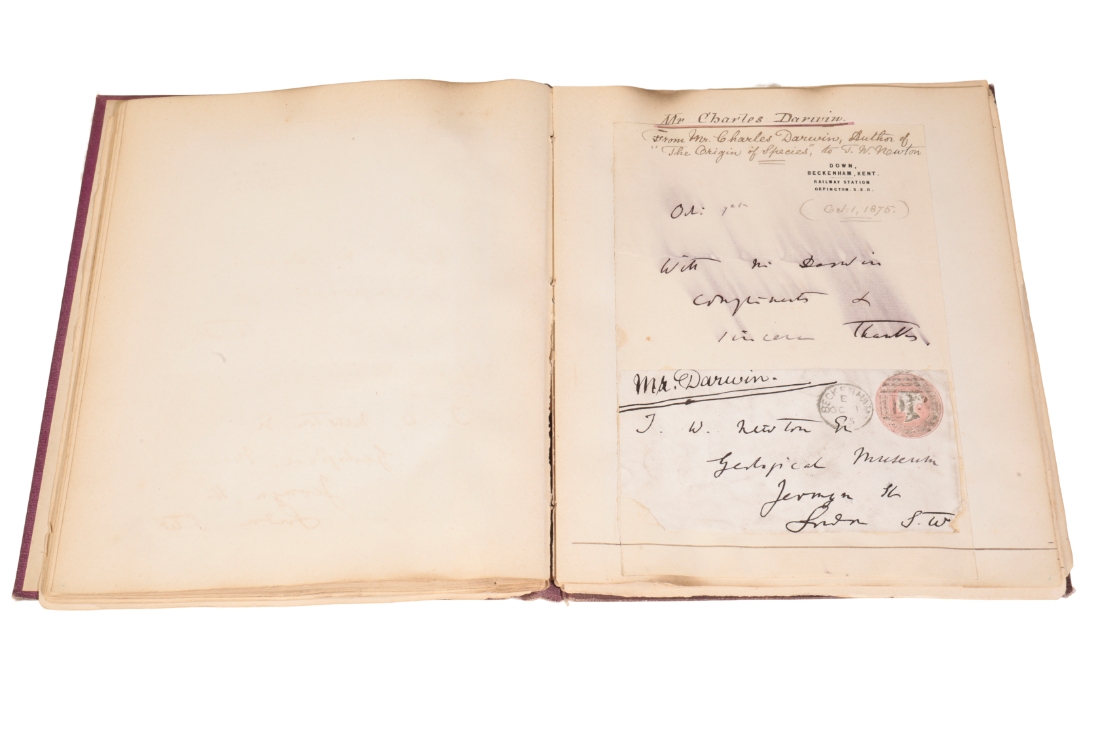 Mr Charles Darwin.
From Mr. Charles Darwin, Author of
"The Origin of Species", to T. W. Newton
DOWN,
BECKENHAM, KENT.
RAILWAY STATION
ORPINGTON. S.E.R.
Oct. 1st
(Oct. 1, 1875.)
With Mr Darwin
Compliments &
sincere Thanks
Mr. Darwin.
BECKENHAM
E
OC 1
T. W. Newton Esq
Geological Museum
Jermyn St
London S.W